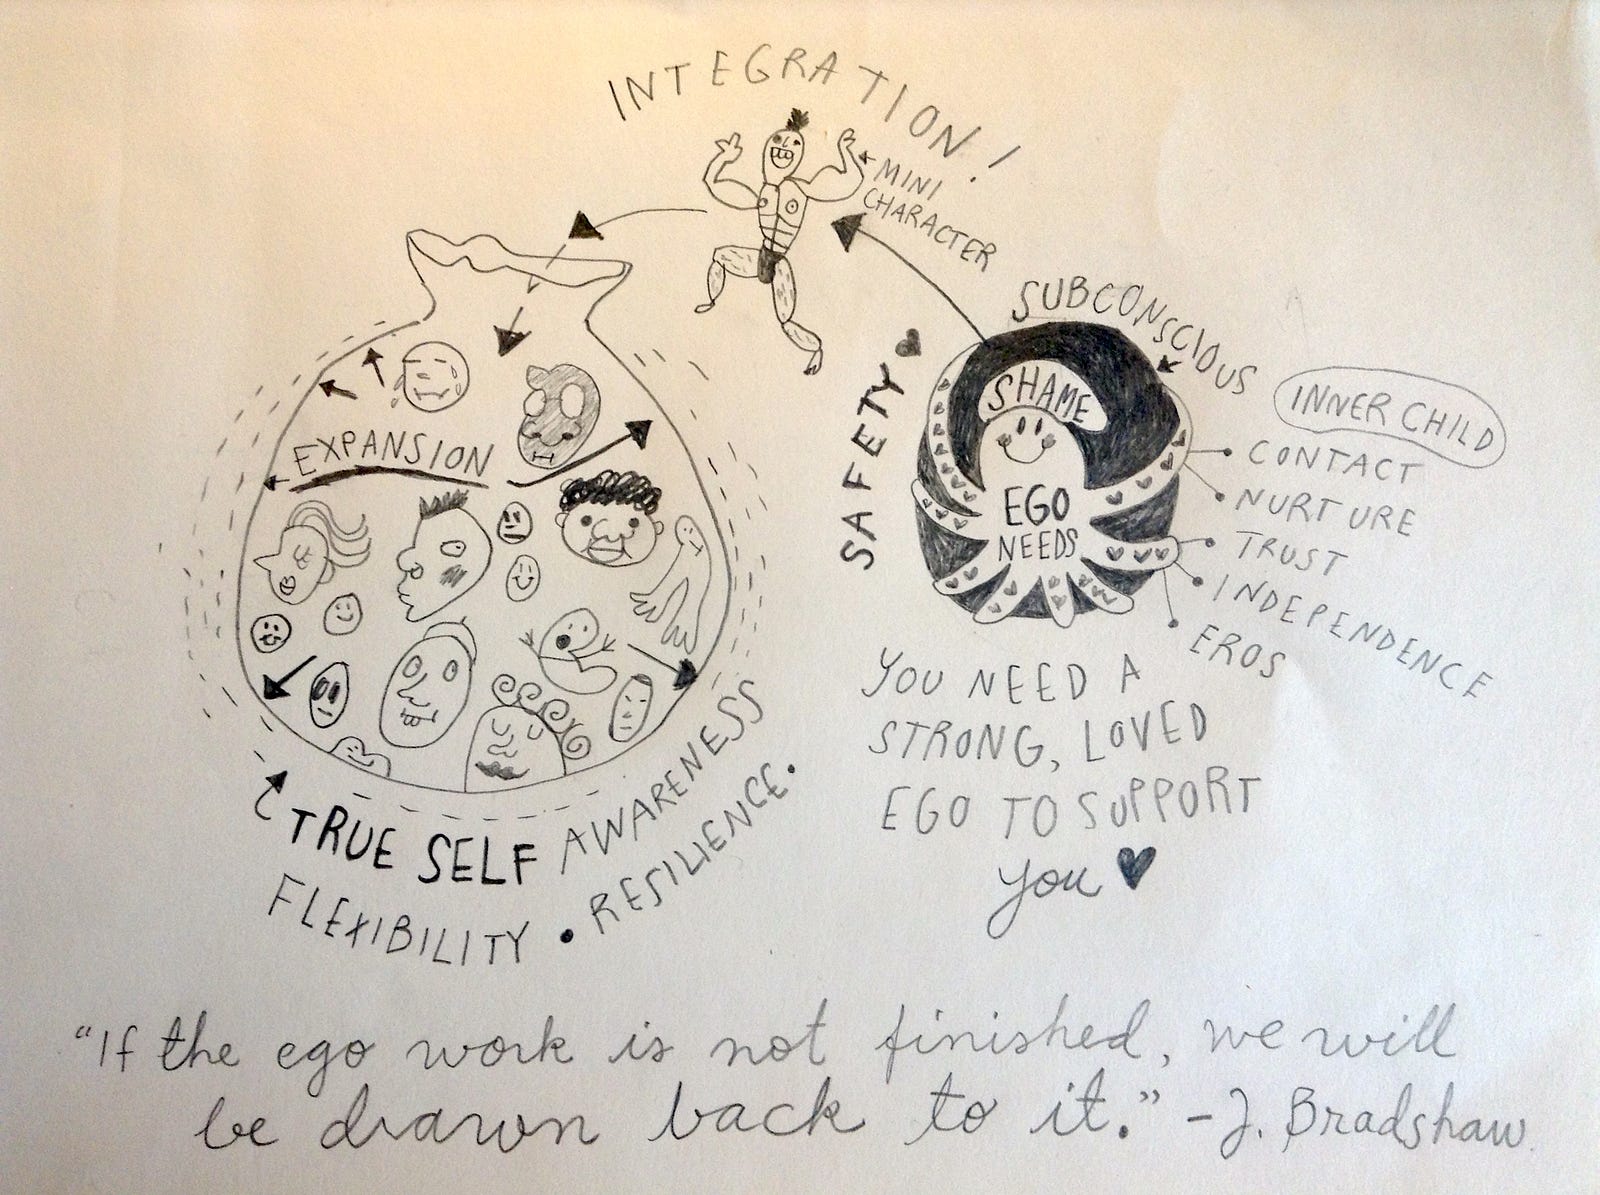 INTEGRATION!
MINI
CHARACTER
SUBCONSCIOUS
SAFETY
SHAME
EGO
NEEDS
INNER CHILD
CONTACT
NURTURE
TRUST
INDEPENDENCE
EROS
EXPANSION
TRUE SELF AWARENESS
FLEXIBILITY • RESILIENCE.
YOU NEED A
STRONG, LOVED
EGO TO SUPPORT
you ♥
"If the ego work is not finished, we will
be drawn back to it." - J. Bradshaw